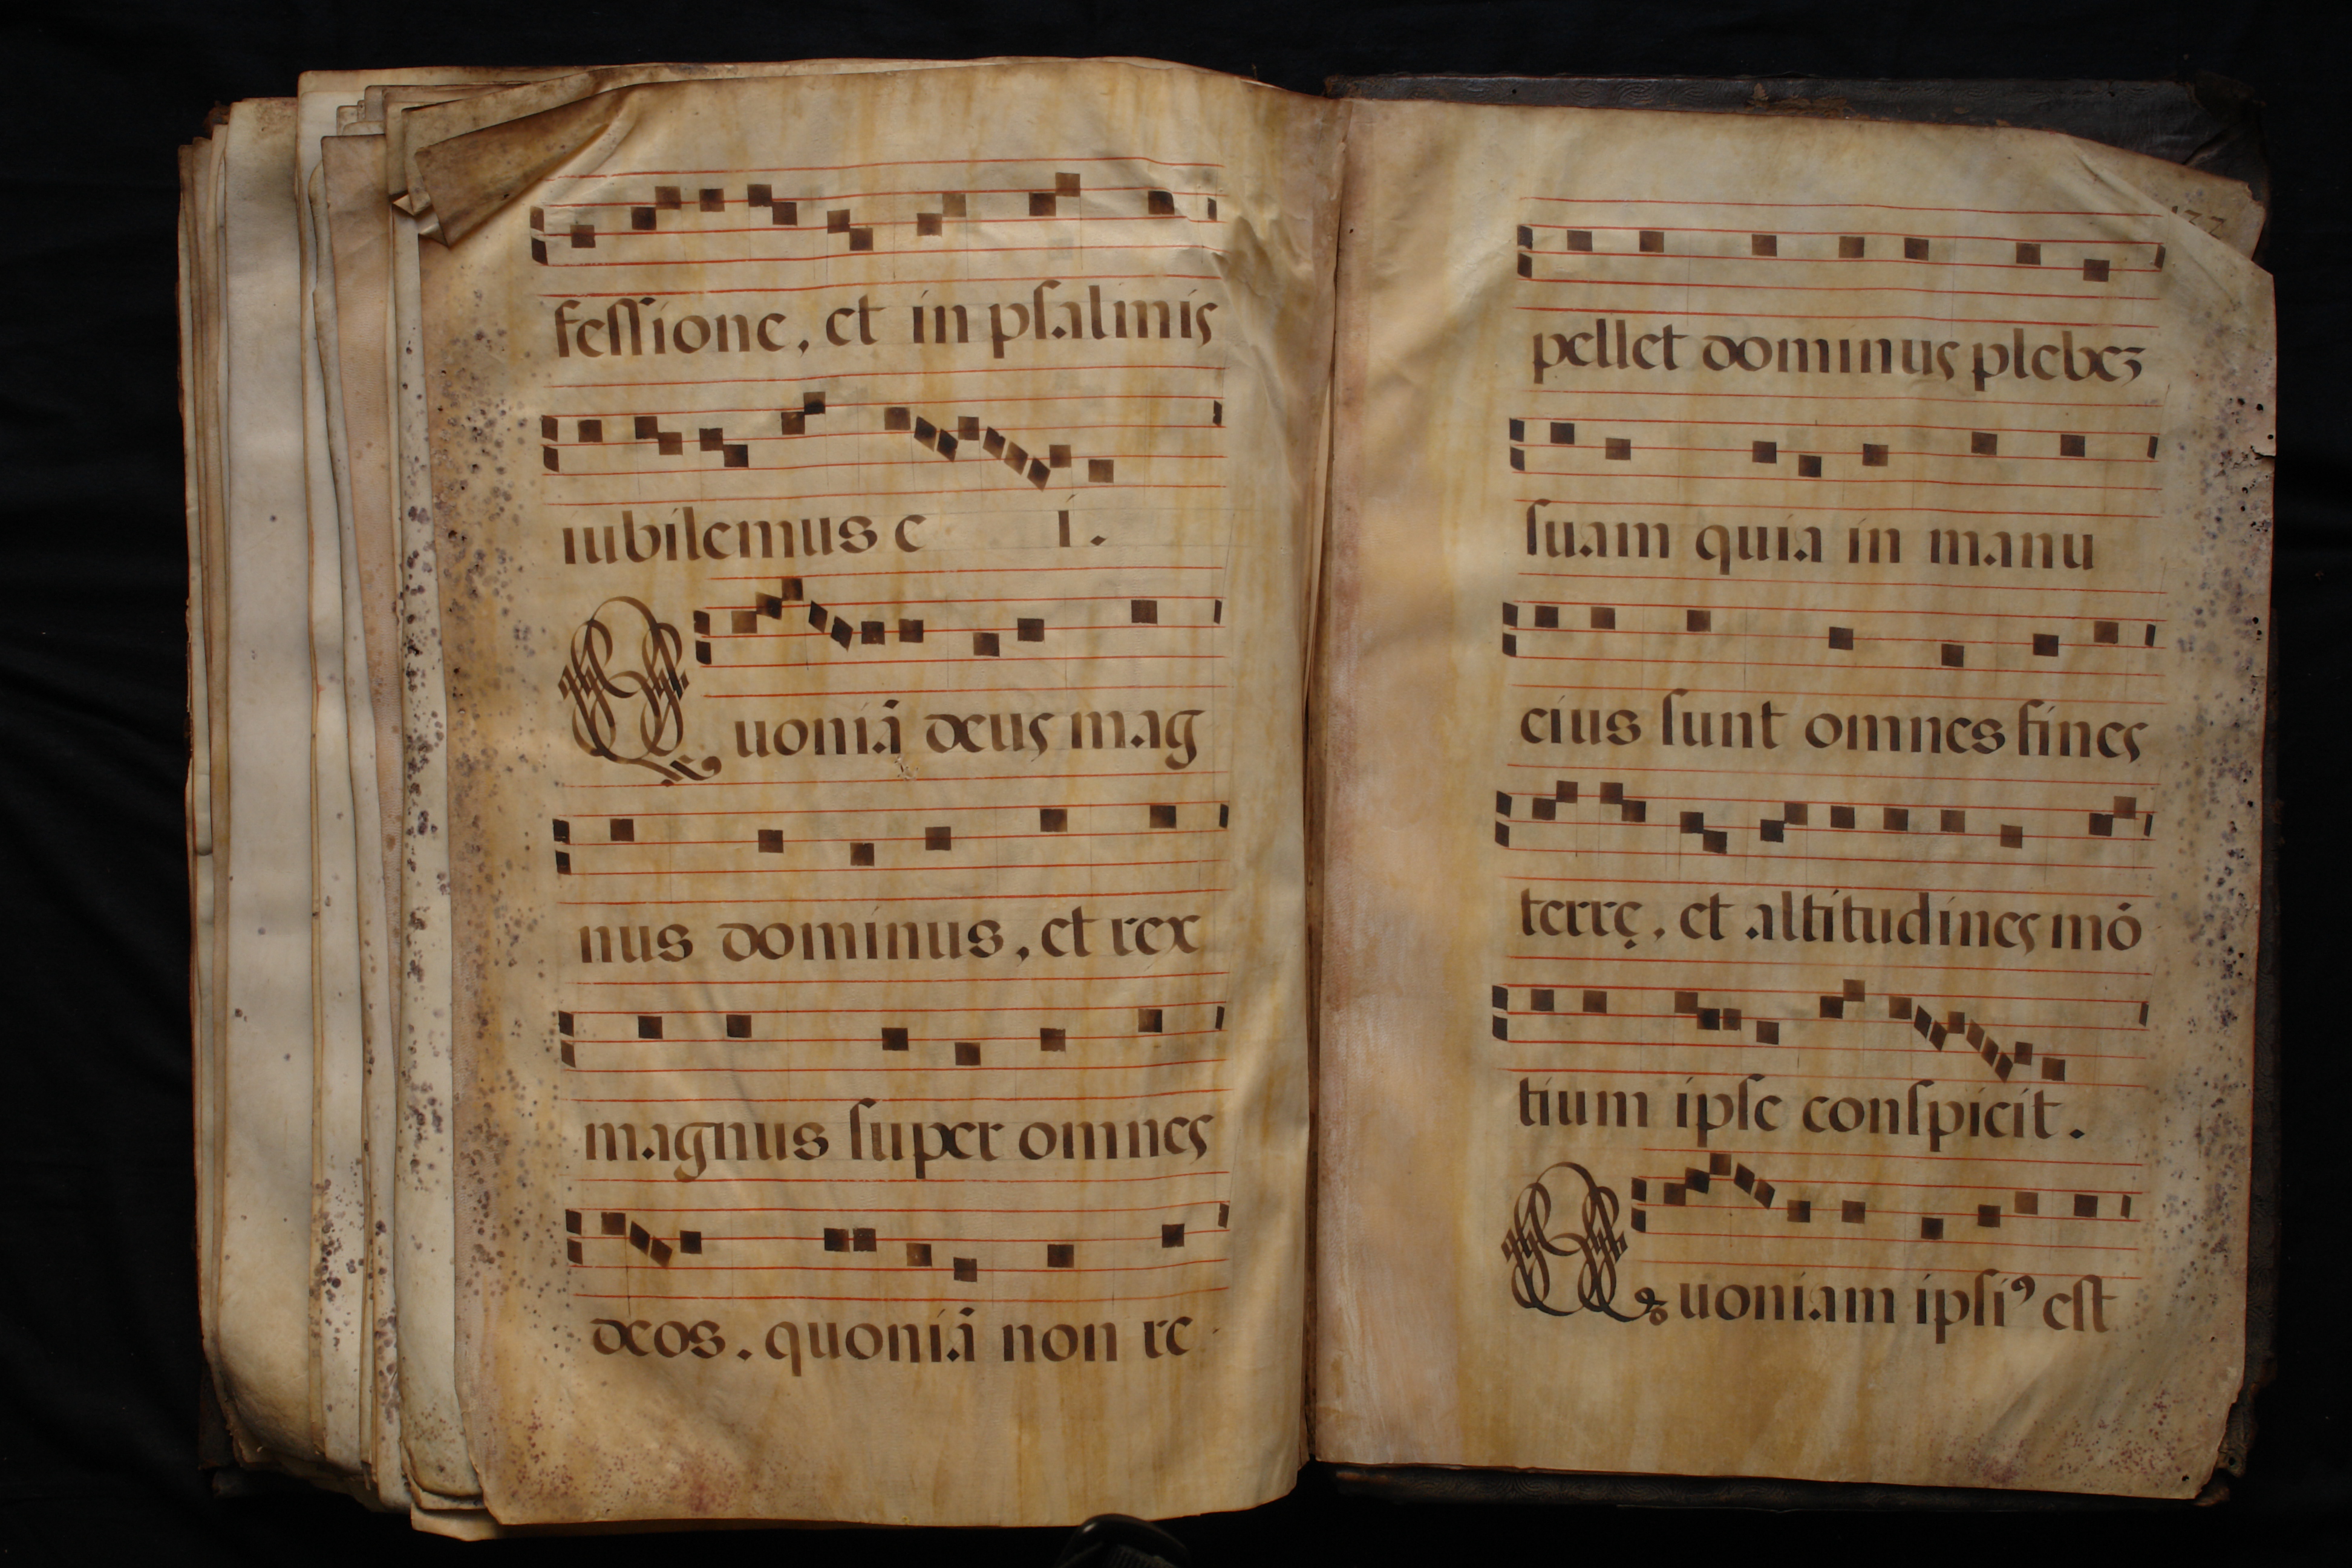 feſſione, et in pſalmis
iubilemus e i.
Quoniā deus mag
nus dominus, et rex
magnus ſuper omnes
deos. quoniā non re
pellet dominus plebeꝫ
ſuam quia in manu
eius ſunt omnes fines
terrę, et altitudines mō
tium ipſe conſpicit.
Quoniam ipſiꝰ eſt